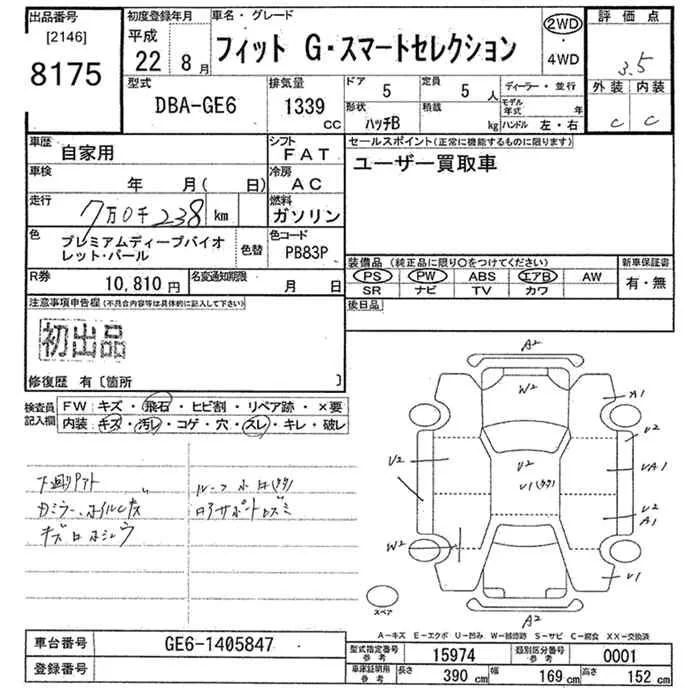 出品番号
[2146]
8175
初度登録年月
平成
22年 8月
車名・グレード
フィット G・スマートセレクション
2WD
・
4WD
評価点
3.5
外装 内装
C C
型式
DBA-GE6
排気量
1339
CC
ドア 5
定員 5 人
形状
ハッチB
積載 kg
ディーラー・並行
モデル年式 年
ハンドル 左・右
車歴
自家用
シフト
FAT
車検
年 月( 日)
冷房
AC
走行
7万0千238 km
燃料
ガソリン
色
プレミアムディープバイオ
レット・パール
色替
色コード
PB83P
R券
10,810 円
名変通知期限
月 日
セールスポイント(正常に機能するものに限ります)
ユーザー買取車
装備品(純正品に限り○をつけてください)
新車保証書
PS PW ABS エアB AW
SR ナビ TV カワ
有・無
後日品
注意事項申告欄(不具合内容等は具体的に記入して下さい)
初出品
修復歴 有〔箇所 〕
検査員
記入欄
FW: キズ・飛石・ヒビ割・リペア跡・×要
内装: キズ・汚レ・コゲ・穴・スレ・キレ・破レ
カミラー、ホイルキズ
A2
W2
A1
U2
U2
U2
UA1
U2
A1
W2
U1
A2
スペア
A-キズ E-エクボ U-凹み W-補修跡 S-サビ C-腐食 XX-交換済
車台番号
GE6-1405847
登録番号
型式指定番号
参考
15974
類別区分番号
参考
0001
車庫証明用
参考
長さ 390 cm 幅 169 cm 高さ 152 cm